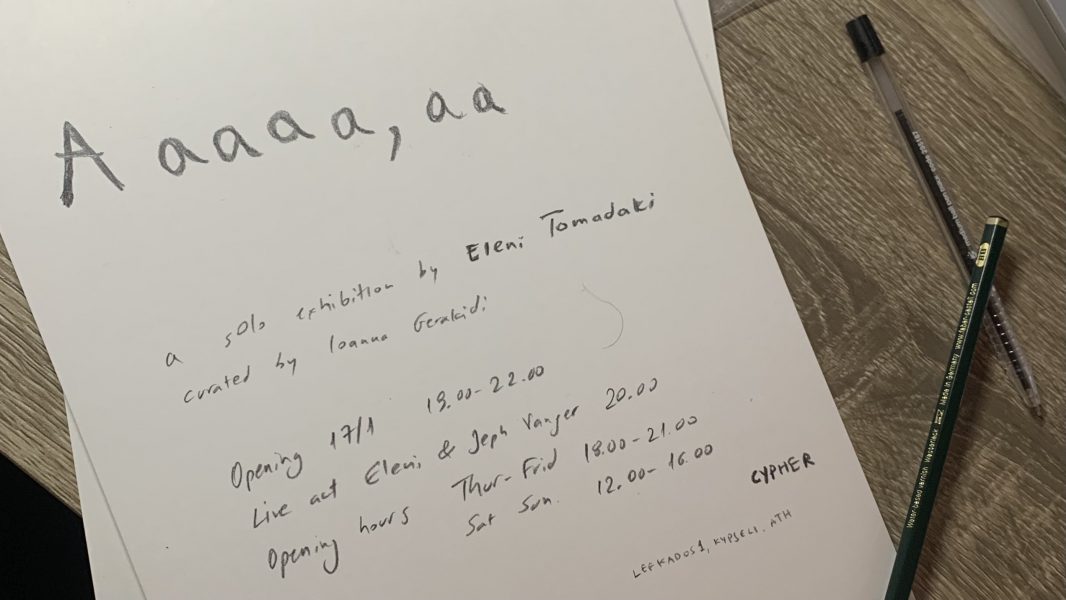 A aaaa, aa
a solo exhibition by Eleni Tomadaki
curated by Ioanna Gerakidi
Opening 17/1 19.00-22.00
Live act Eleni & Jeph Vanger 20.00
Opening hours Thur-Frid 18.00-21.00
Sat Sun. 12.00-16.00
CYPHER
LEFKADOS 1, KYPSELI, ATH
Water-based varnish Wasserlack Made in Germany www.faber-castell.com